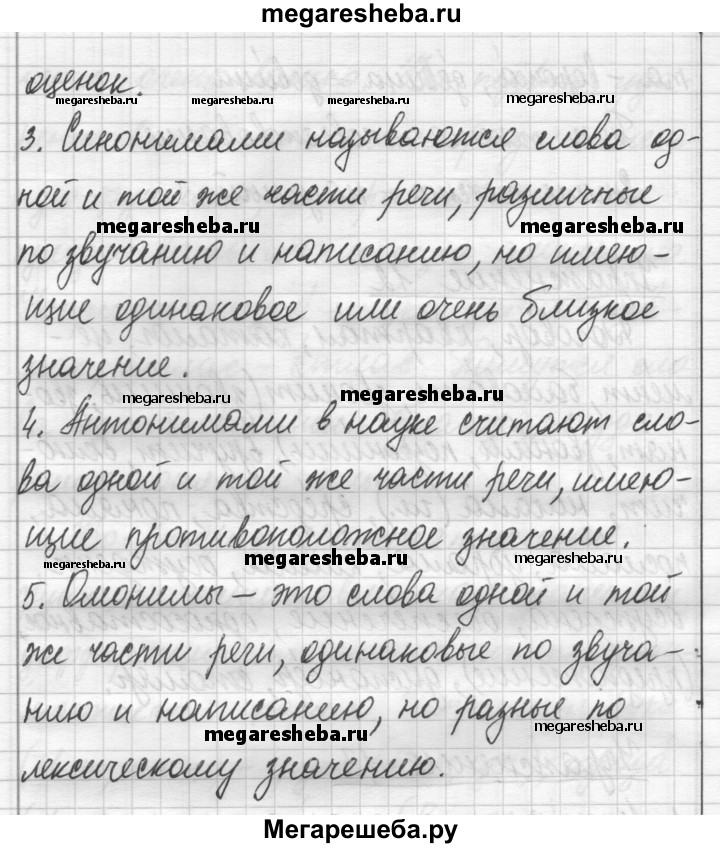 megaresheba.ru
оценок.
megaresheba.ru megaresheba.ru megaresheba.ru megaresheba.ru
3. Синонимами называются слова од-
ной и той же части речи, различные
megaresheba.ru megaresheba.ru
по звучанию и написанию, но имею-
щие одинаковое или очень близкое
значение.
megaresheba.ru megaresheba.ru
4. Антонимами в науке считают сло-
ва одной и той же части речи, имею-
щие противоположное значение.
megaresheba.ru megaresheba.ru megaresheba.ru
5. Омонимы – это слова одной и той
же части речи, одинаковые по звуча-
нию и написанию, но разные по
megaresheba.ru megaresheba.ru
лексическому значению.
Мегарешеба.ру